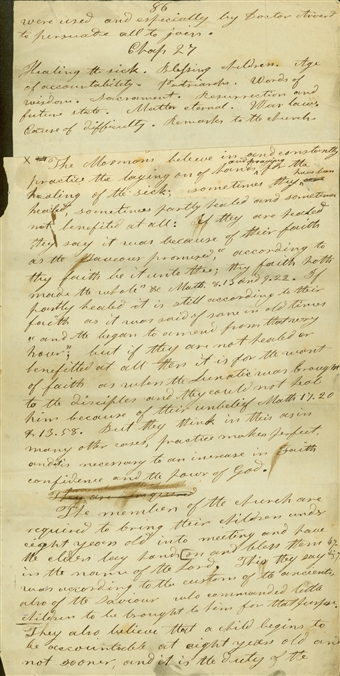 86
were used and especially by Doctor
to persuade all to join.
Chap 27
Healing the sick. Blessing children. Age
of accountability. Patriarchs. Words of
wisdom. Sacrament. Resurrection and
future state. Matter eternal. War law.
Cause of difficulty. Remarks to the church.
X The Mormons believe in and constantly
practice the laying on of hands and prayer for the
healing of the sick; sometimes they
healed, sometimes partly healed and sometimes
not benefited at all: If they are healed
they say it was because of their faith
as the Saviour promised, "according to
thy faith be it unto thee; thy faith hath
made the whole" &c Math. 8.13 and 9.22. If
partly healed it is still according to their
faith as it was said of some in old times
"and the began to amend from that very
hour"; but if they are not healed or
benefitted at all then it is for the want
of faith as when the Lunatic was brought
to the disciples and they could not heal
him because of their unbelief Math 17.20
& 13.58. But they think in this as in
many other cases, practice makes perfect,
and is necessary to an increase in faith
confidence and the power of God.
They are
The members of the church are
required to bring their children under
eight years old into meeting and have
the elders lay hands on and bless them
in the name of the Lord. This they say
was according to the custom of the ancients
also of the Saviour who commanded little
children to be brought to him for that purpose.
They also believe that a child begins to
be accountable at eight years old and
not sooner, and it is the duty of the